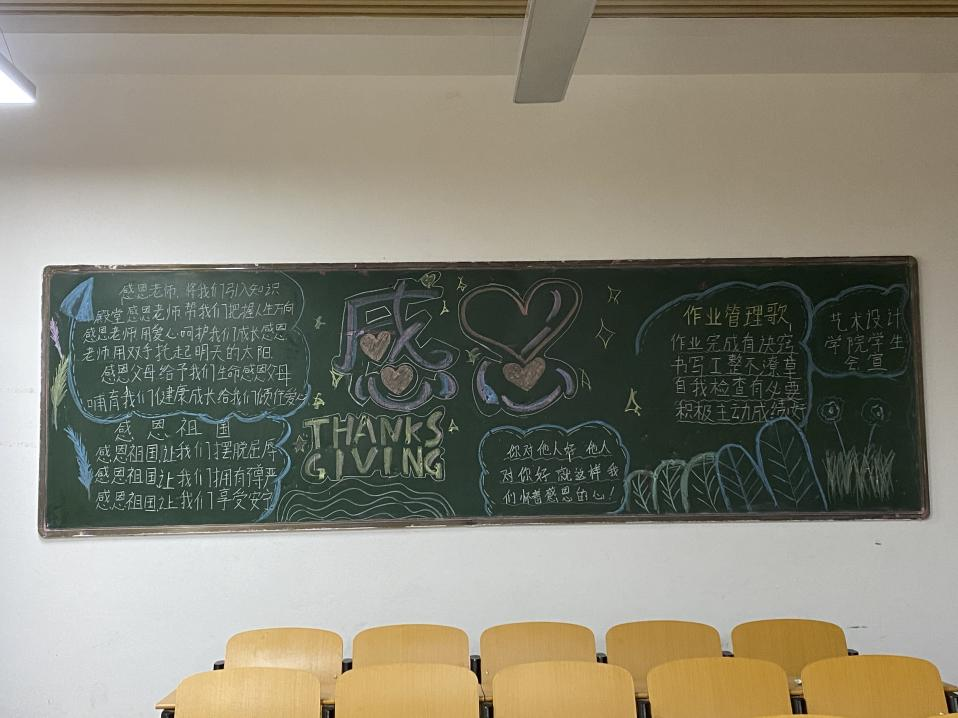 感恩老师,将我们引入知识
殿堂感恩老师帮我们把握人生方向
感恩老师用爱心呵护我们成长感恩
老师用双手托起明天的太阳
感恩父母给予我们生命感恩父母
哺育我们健康成长给我们倾注爱心
感恩祖国
感恩祖国让我们摆脱屈辱
感恩祖国让我们拥有尊严
感恩祖国让我们享受安宁
感恩
THANKS
GIVING
你对他人好 他人
对你好 就这样我
们怀着感恩的心!
作业管理歌
作业完成有诀窍
书写工整不潦草
自我检查有必要
积极主动成绩好
艺术设计
学院学生
会 宣